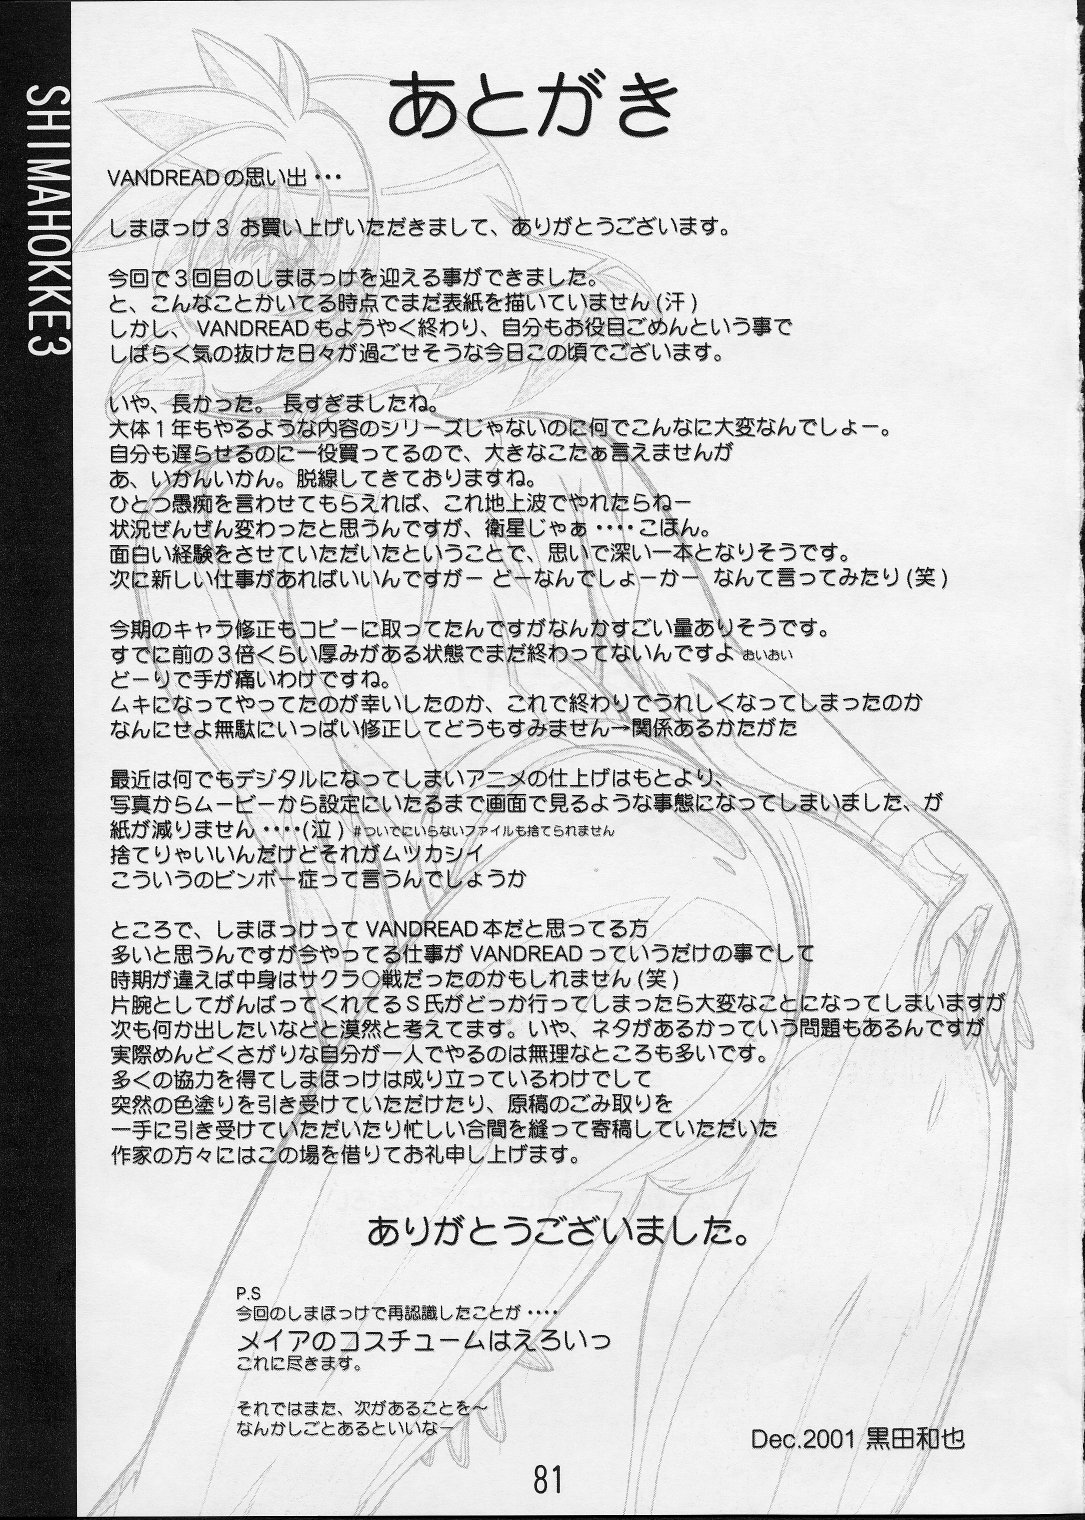 SHIMAHOKKE3
あとがき
VANDREADの思い出・・・
しまほっけ３ お買い上げいただきまして、ありがとうございます。
今回で３回目のしまほっけを迎える事ができました。
と、こんなことかいてる時点でまだ表紙を描いていません(汗)
しかし、VANDREADもようやく終わり、自分もお役目ごめんという事で
しばらく気の抜けた日々が過ごせそうな今日この頃でございます。
いや、長かった。長すぎましたね。
大体１年もやるような内容のシリーズじゃないのに何でこんなに大変なんでしょー。
自分も遅らせるのに一役買ってるので、大きなこたぁ言えませんが
あ、いかんいかん。脱線してきておりますね。
ひとつ愚痴を言わせてもらえれば、これ地上波でやれたらねー
状況ぜんぜん変わったと思うんですが、衛星じゃぁ・・・・こほん。
面白い経験をさせていただいたということで、思いで深い一本となりそうです。
次に新しい仕事があればいいんですがー どーなんでしょーかー なんて言ってみたり(笑)
今期のキャラ修正もコピーに取ってたんですがなんかすごい量ありそうです。
すでに前の３倍くらい厚みがある状態でまだ終わってないんですよ おいおい
どーりで手が痛いわけですね。
ムキになってやってたのが幸いしたのか、これで終わりでうれしくなってしまったのか
なんにせよ無駄にいっぱい修正してどうもすみません→関係あるかたがた
最近は何でもデジタルになってしまいアニメの仕上げはもとより、
写真からムービーから設定にいたるまで画面で見るような事態になってしまいました、が
紙が減りません・・・・(泣) #ついでにいらないファイルも捨てられません
捨てりゃいいんだけどそれがムツカシイ
こういうのビンボー症って言うんでしょうか
ところで、しまほっけってVANDREAD本だと思ってる方
多いと思うんですが今やってる仕事がVANDREADっていうだけの事でして
時期が違えば中身はサクラ○戦だったのかもしれません(笑)
片腕としてがんばってくれてるＳ氏がどっか行ってしまったら大変なことになってしまいますが
次も何か出したいなどと漠然と考えてます。いや、ネタがあるかっていう問題もあるんですが
実際めんどくさがりな自分が一人でやるのは無理なところも多いです。
多くの協力を得てしまほっけは成り立っているわけでして
突然の色塗りを引き受けていただけたり、原稿のごみ取りを
一手に引き受けていただいたり忙しい合間を縫って寄稿していただいた
作家の方々にはこの場を借りてお礼申し上げます。
ありがとうございました。
P.S
今回のしまほっけで再認識したことが・・・・
メイアのコスチュームはえろいっ
これに尽きます。
それではまた、次があることを～
なんかしごとあるといいなー
Dec.2001 黒田和也
81